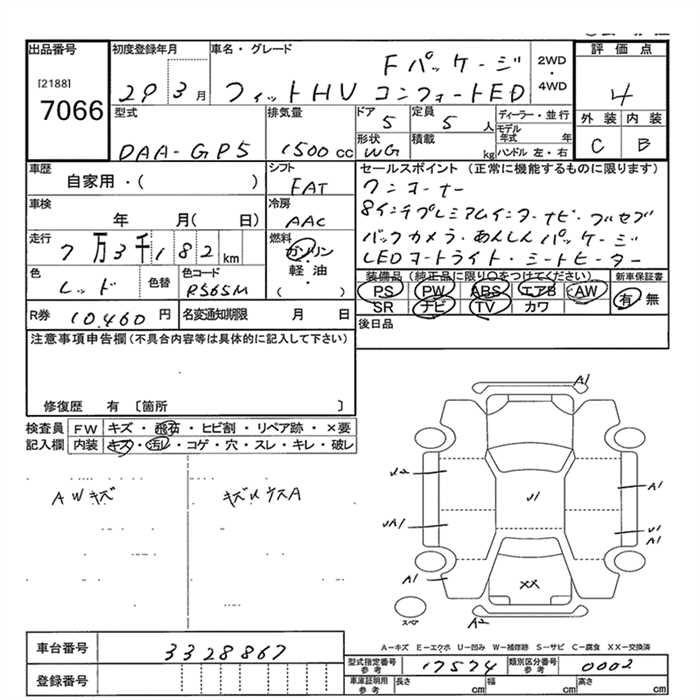 出品番号
[2188]
7066
初度登録年月
29 3月
車名・グレード
Fパッケージ
フィットHV コンフォートED
2WD
・
4WD
評価点
4
外装 内装
C B
型式
DAA-GP5
排気量
1500 cc
ドア
5
定員
5 人
ディーラー・並行
モデル年式 年
ハンドル 左・右
形状
WG
積載
kg
車歴
自家用・( )
シフト
FAT
車検
年 月( 日)
冷房
AAC
走行
7万3千182 km
燃料
ガソリン
・
軽油
( )
色
レッド
色替
色コード
R565M
R券 10,460 円
名変通知期限 月 日
セールスポイント (正常に機能するものに限ります)
ワンオーナー
8インチプレミアムインターナビ・フルセグ
バックカメラ・あんしんパッケージ
LEDオートライト・シートヒーター
装備品 (純正品に限り○をつけてください)
PS PW ABS エアB AW
SR ナビ TV カワ
新車保証書
有 無
後日品
注意事項申告欄 (不具合内容等は具体的に記入して下さい)
修復歴 有 〔箇所 〕
検査員
記入欄
FW キズ・飛石・ヒビ割・リペア跡・×要
内装 キズ・汚レ・コゲ・穴・スレ・キレ・破レ
AWキズ
A1
U2
UA1
A1
U1
A1
U1
A1
XX
A2
スペア
A-キズ E-エクボ U-凹み W-補修跡 S-サビ C-腐食 XX-交換済
車台番号 3328867
登録番号
型式指定番号
参考
17574
類別区分番号
参考
0002
車庫証明用
参考
長さ cm 幅 cm 高さ cm